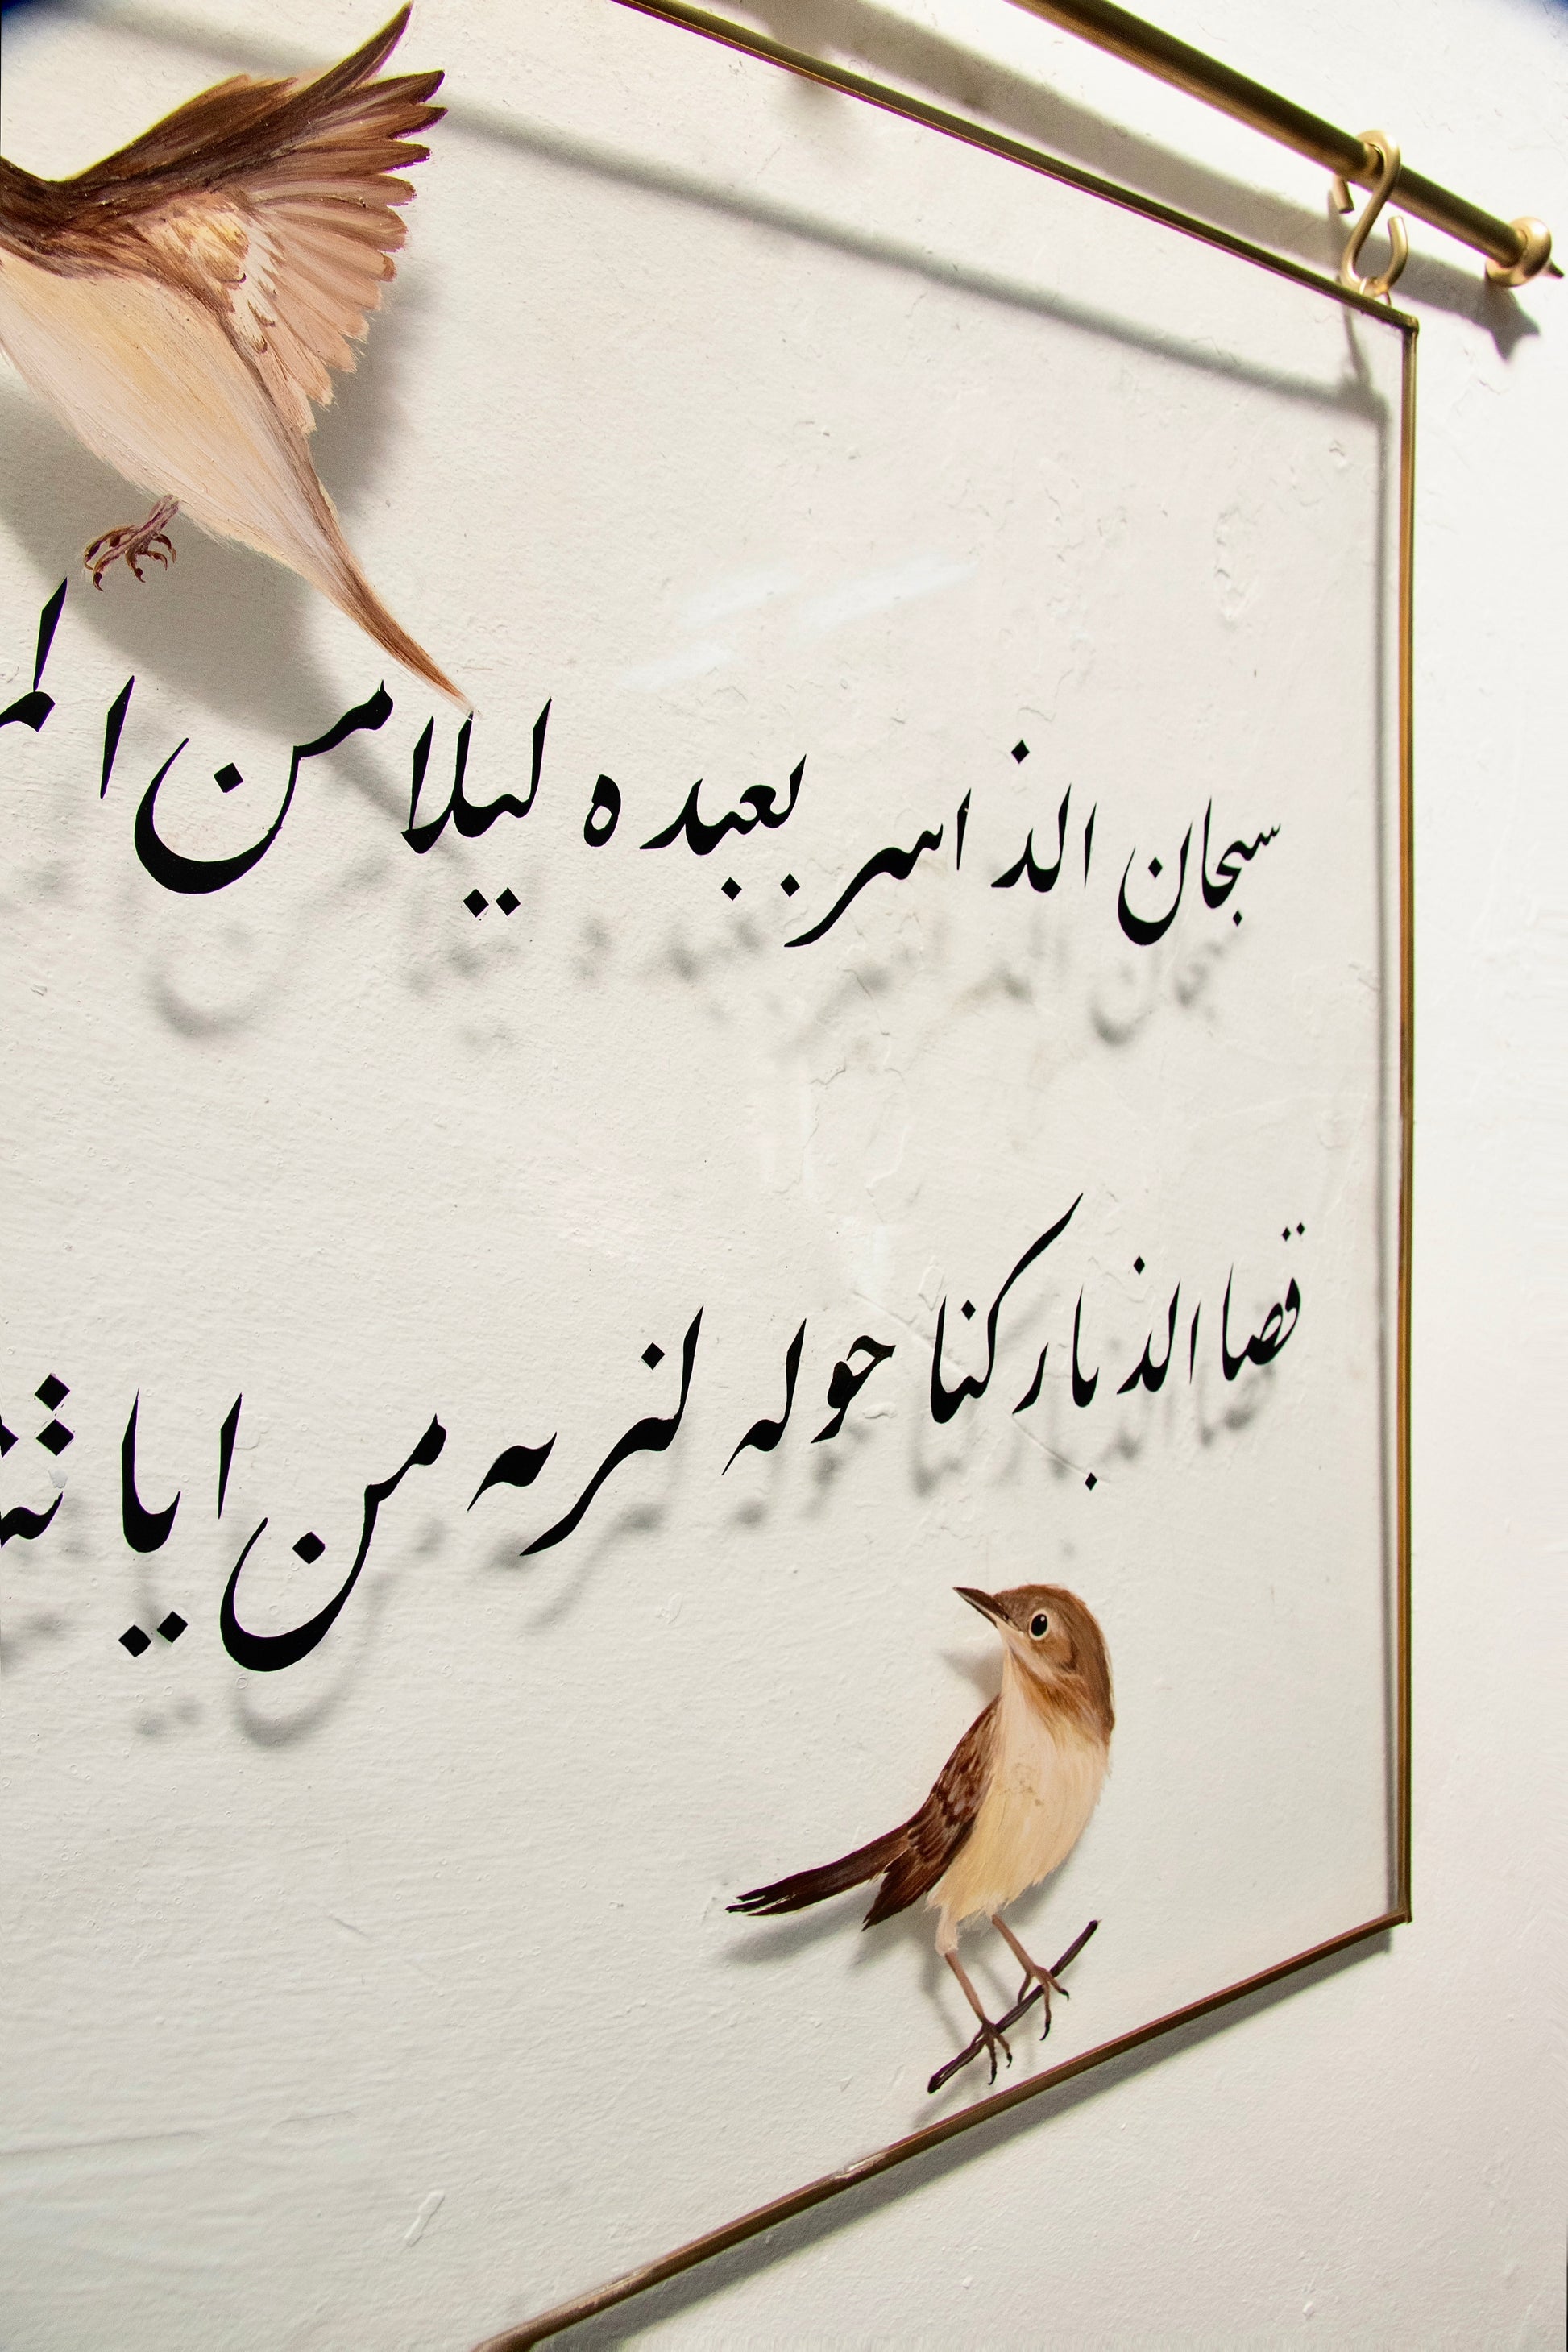 سبحان الذ اسر بعبده ليلا من
قصا الذ باركنا حوله لنريه من ايا